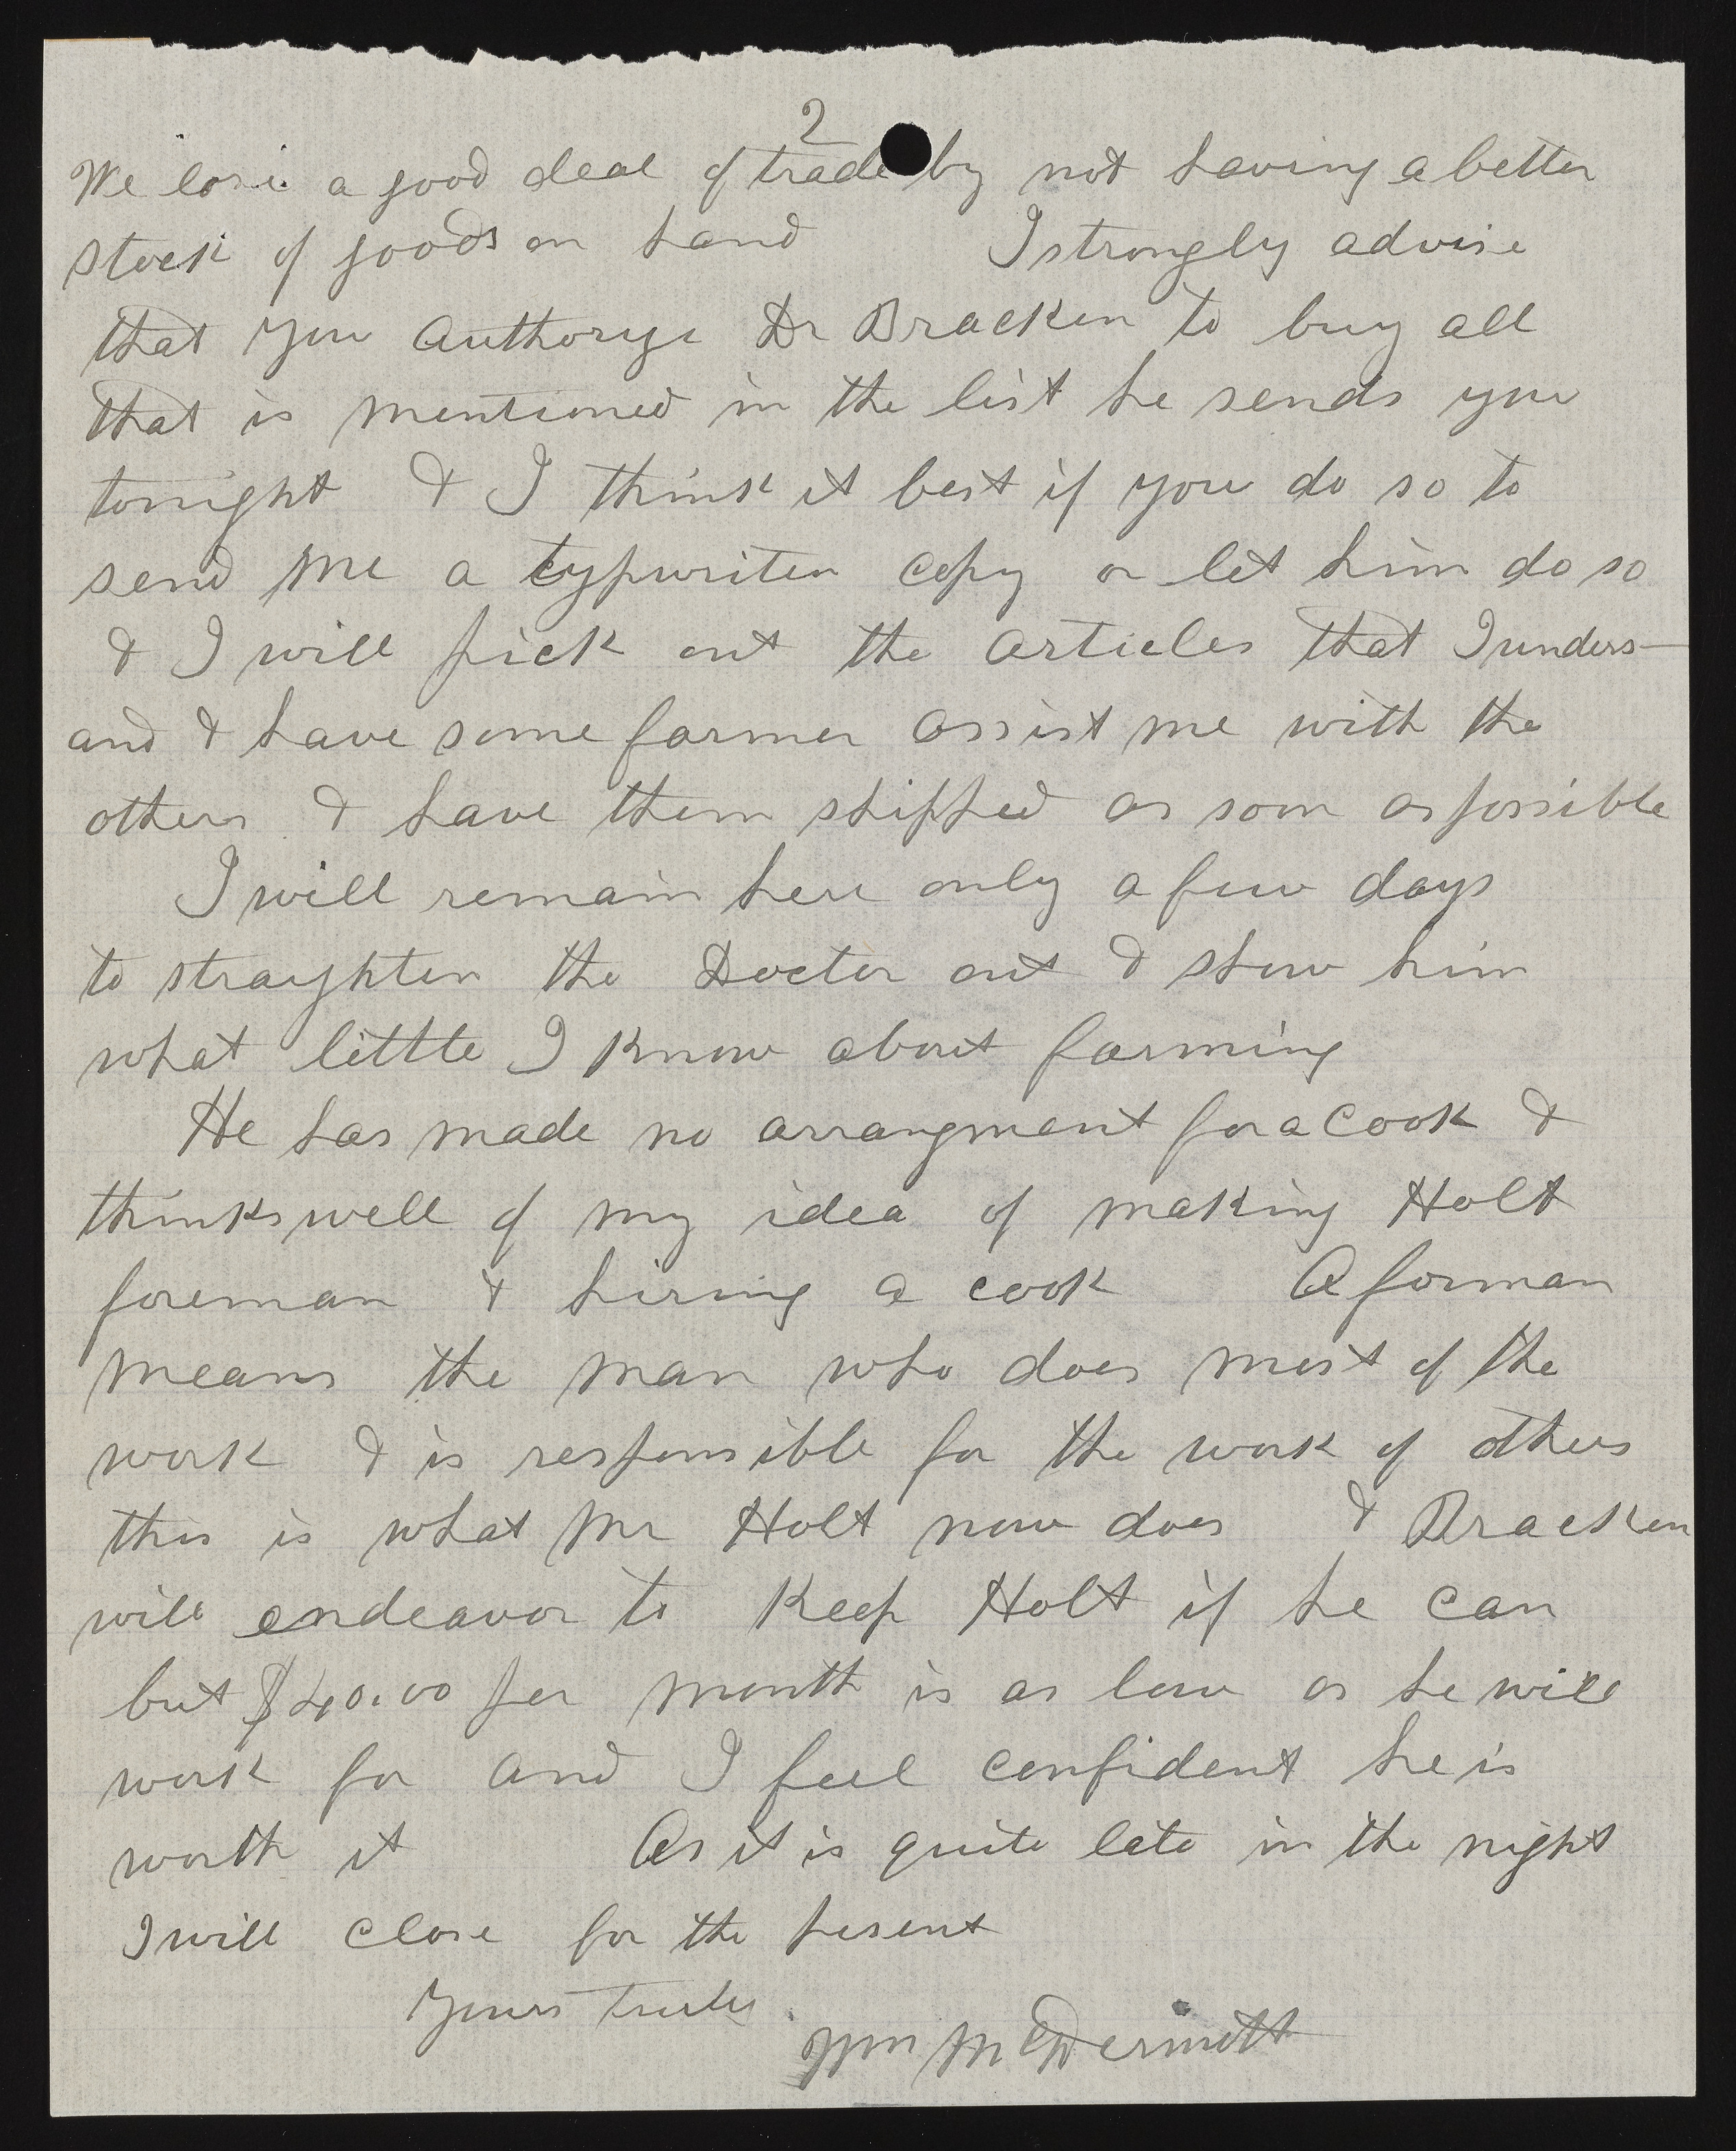 2
We lose a good deal of trade by not having a better
stock of goods on hand I strongly advise
that you authoryze Dr Bracken to buy all
that is mentioned in the list he sends you
tonight & I think it best if you do so to
send me a typwriten copy or let him do so
& I will pick out the articles that I unders-
and & have some farmer assist me with the
others & have them shipped as soon as possible
I will remain here only a few days
to straighten the Doctor out & show him
what little I know about farming
He has made no arrangment for a cook &
thinks well of my idea of making Holt
foreman & hiring a cook A forman
means the man who does most of the
work & is responsible for the work of others
this is what Mr Holt now does & Bracken
will endeavor to keep Holt if he can
but $40.00 per month is as low as he will
work for and I feel confident he is
worth it As it is quite late in the night
I will close for the present
Yours Truly
Wm McDermott